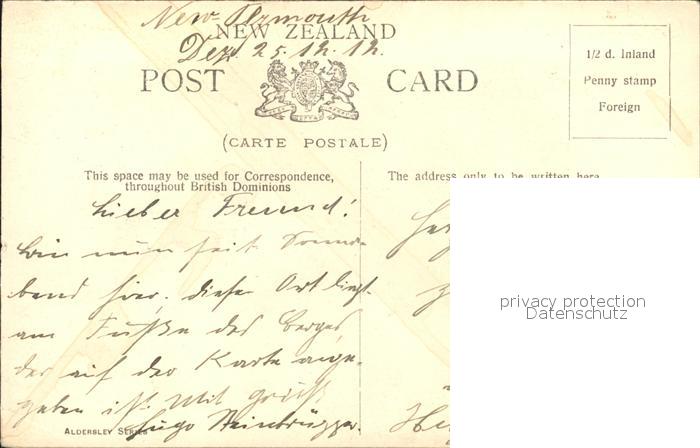 New Plymouth
NEW ZEALAND
Dez. 25.12.12.
POST CARD
(CARTE POSTALE)
1/2 d. Inland
Penny stamp
Foreign
This space may be used for Correspondence,
throughout British Dominions
The address only to be written here
Lieber Freund!
bin nun seit Sonna-
bend hier. dieser Ort liegt
am Fuße des Berges
der auf der Karte ange-
geben ist. Mit Gruß
Hugo
ALDERSLEY SERIES
privacy protection
Datenschutz